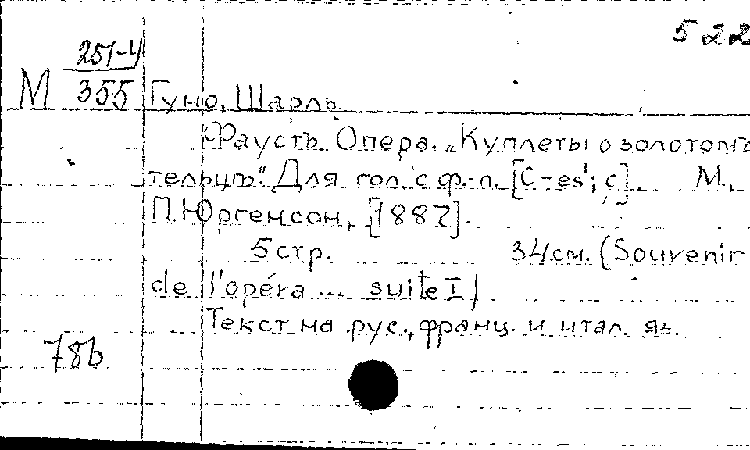 522
251-4
М 355 Гуно, Шарль
Фаустъ. Опера. „Куплеты о золотомъ
тельцъ". Для гол. с ф-п. [C-es'; c]. М.,
П. Юргенсон, [1882].
5 стр. 34 см. (Souvenir
de l'opéra ... suite I)
Текст на рус., франц. и итал. яз.
78b